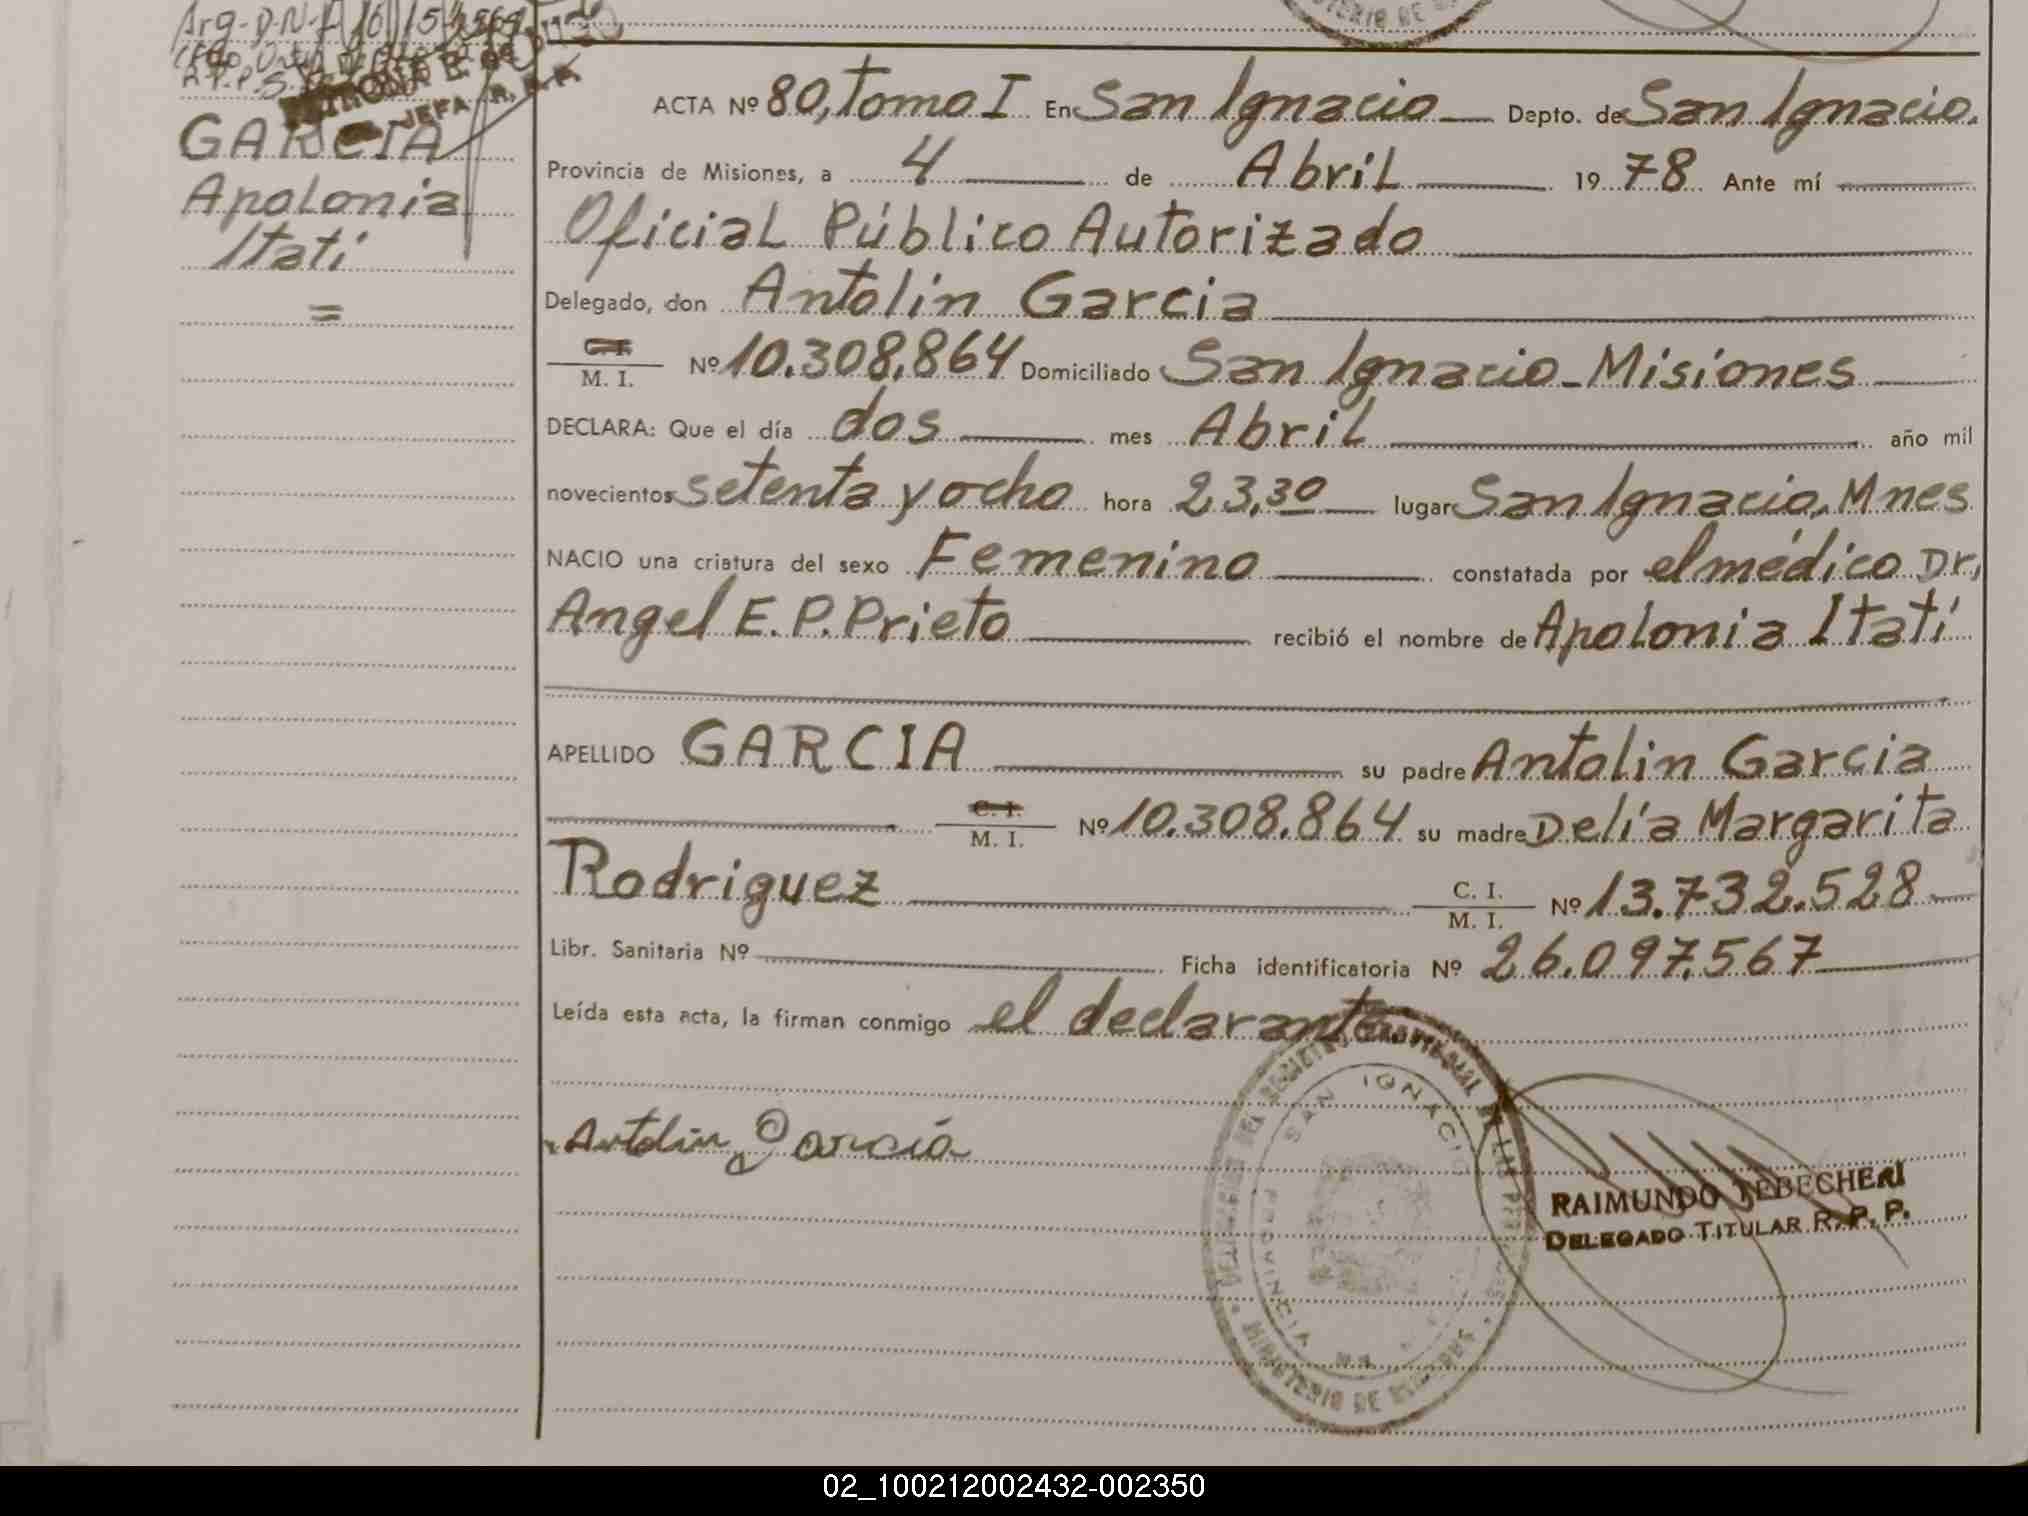 Arg-D-N-I
GARCIA
Apolonia
Itatí
=
ACTA Nº 80, tomo I En San Ignacio Depto. de San Ignacio.
Provincia de Misiones, a 4 de Abril 19 78 Ante mí
Oficial Público Autorizado
Delegado, don Antolin Garcia
C. I.
M. I. Nº 10.308.864 Domiciliado San Ignacio - Misiones
DECLARA: Que el día dos mes Abril año mil
novecientos setenta y ocho hora 23,30 lugar San Ignacio, Mnes
NACIO una criatura del sexo Femenino constatada por el médico Dr,
Angel E. P. Prieto recibió el nombre de Apolonia Itatí
APELLIDO GARCIA su padre Antolin Garcia
C. I.
M. I. Nº 10.308.864 su madre Delia Margarita
Rodriguez C. I.
M. I. Nº 13.732.528
Libr. Sanitaria Nº Ficha identificatoria Nº 26.097.567
Leída esta acta, la firman conmigo el declarante
SAN IGNACIO
PROVINCIA
MINISTERIO DE
Antolin Garcia
RAIMUNDO TEBECHERI
DELEGADO TITULAR R. P. P.
02_100212002432-002350